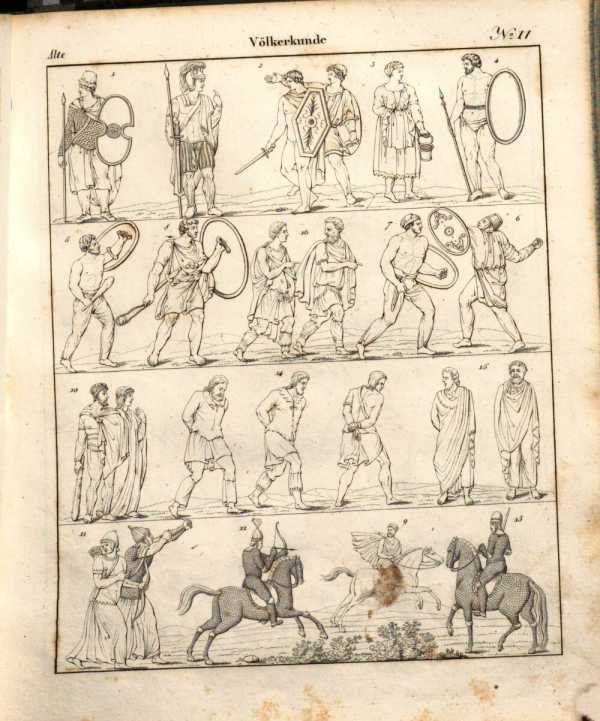 Völkerkunde
Nº 11
Alte
1 2 3 4
5 8 16 7 6
10 14 15
11 12 9 13